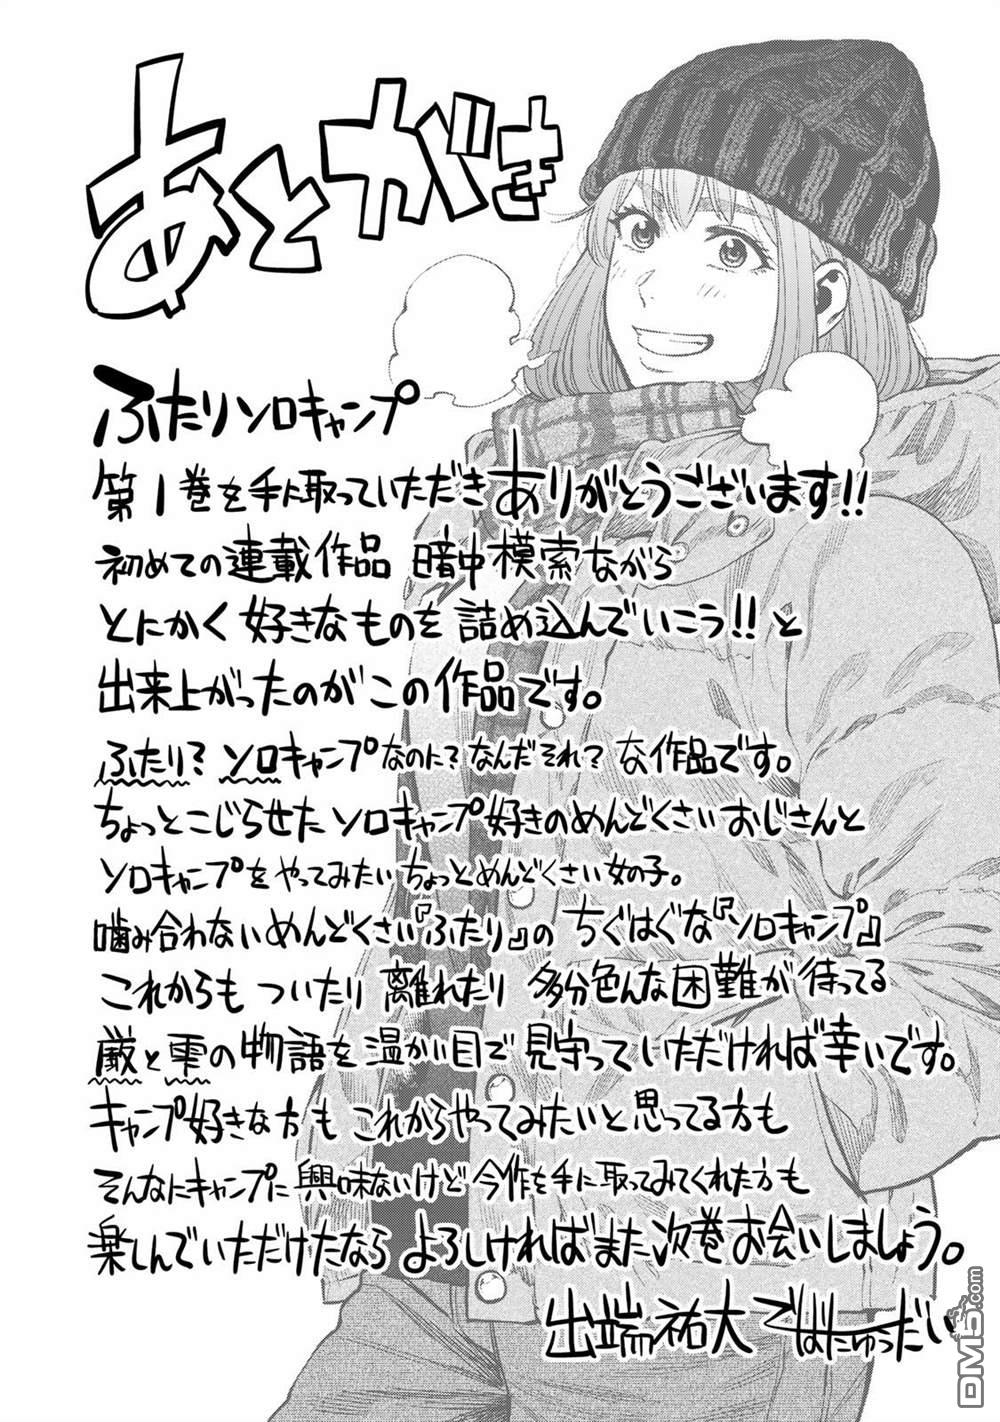 あとがき
ふたりソロキャンプ
第1巻を手に取っていただきありがとうございます!!
初めての連載作品 暗中模索ながら
とにかく好きなものを詰め込んでいこう!!と
出来上がったのがこの作品です。
ふたり?ソロキャンプなのに?なんだそれ?な作品です。
ちょっとこじらせたソロキャンプ好きのめんどくさいおじさんと
ソロキャンプをやってみたいちょっとめんどくさい女の子。
噛み合わないめんどくさい『ふたり』のちぐはぐな『ソロキャンプ』
これからもついたり離れたり多分色んな困難が待ってる
厳と雫の物語を温かい目で見守っていただければ幸いです。
キャンプ好きな方もこれからやってみたいと思ってる方も
そんなにキャンプに興味ないけど今作を手に取ってみてくれた方も
楽しんでいただけたなら よろしければまた次巻お会いしましょう。
出端祐大 ではたゆうだい
DM5.com